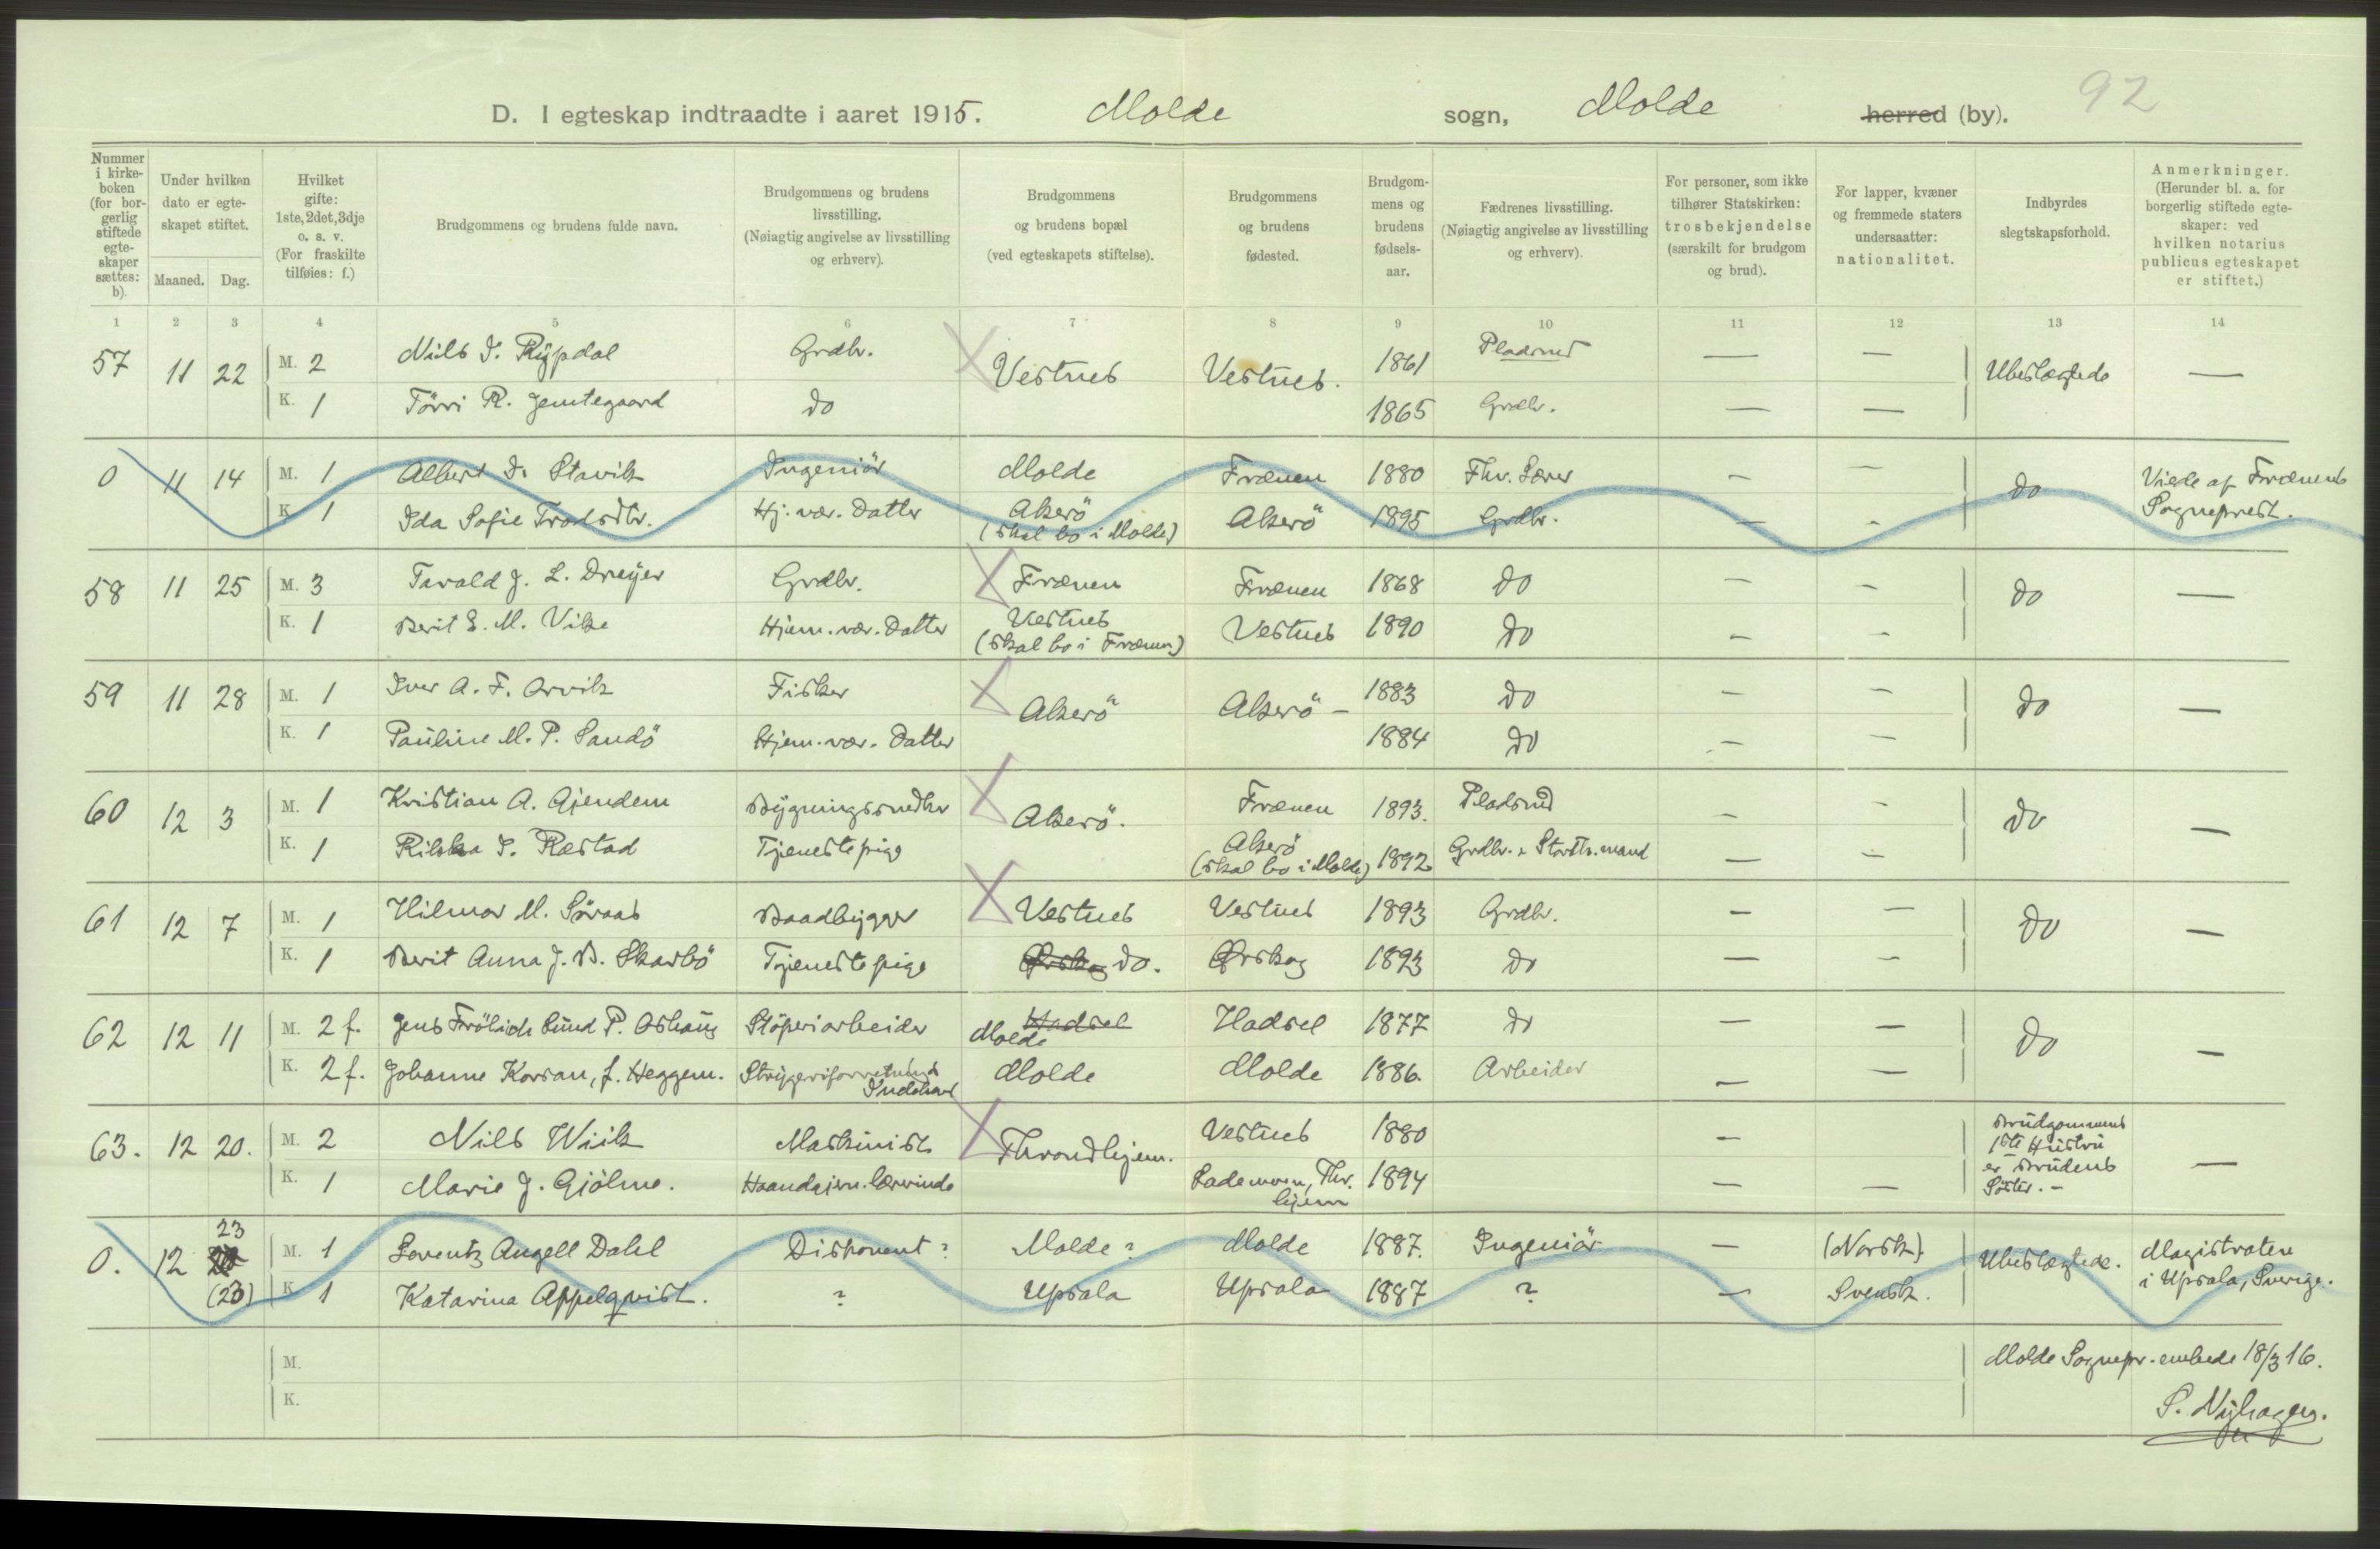 92
D. I egteskap indtraadte i aaret 1915. Molde sogn, Molde herred (by).
Nummer i kirkeboken (for borgerlig stiftede egteskaper sættes: b).
Under hvilken dato er egteskapet stiftet.
Maaned. Dag.
Hvilket gifte: 1ste, 2det, 3dje o. s. v. (For fraskilte tilføies: f.)
Brudgommens og brudens fulde navn.
Brudgommens og brudens livsstilling. (Nøiagtig angivelse av livsstilling og erhverv).
Brudgommens og brudens bopæl (ved egteskapets stiftelse).
Brudgommens og brudens fødested.
Brudgommens og brudens fødselsaar.
Fædrenes livsstilling. (Nøiagtig angivelse av livsstilling og erhverv).
For personer, som ikke tilhører Statskirken: trosbekjendelse (særskilt for brudgom og brud).
For lapper, kvæner og fremmede staters undersaatter: nationalitet.
Indbyrdes slegtskapsforhold.
Anmerkninger. (Herunder bl. a. for borgerlig stiftede egteskaper: ved hvilken notarius publicus egteskapet er stiftet.)
1 2 3 4 5 6 7 8 9 10 11 12 13 14
57 11 22 M. 2 Nils I. Rypdal Grdbr. Vestnes Vestnes. 1861 Pladsmd — — Ubeslægtede —
K. 1 Törri R. Jemtegaard do 1865 Grdbr. — —
0 11 14 M. 1 Albert I. Stavik Ingeniör Molde Frænen 1880 Fhv. Lærer — — do Viede af Frænens
K. 1 Ida Sofie Trodsdtr. Hj. vær. Datter Akerö (skal bo i Molde) Akerö 1895 Grdbr. — — Sogneprest.
58 11 25 M. 3 Tarald J. L. Dreyer Grdbr. Frænen Frænen 1868 do — — do —
K. 1 Berit E. M. Vike Hjem. vær. Datter Vestnes (skal bo i Frænen) Vestnes 1890 do — —
59 11 28 M. 1 Iver A. F. Orvik Fisker Akerö Akerö — 1883 do — — do —
K. 1 Pauline M. P. Sandö Hjem. vær. Datter 1884 do — —
60 12 3 M. 1 Kristian A. Gjendem Bygningssnedker Akerö. Frænen 1893. Pladsmd — — do —
K. 1 Rikka I. Restad Tjenestepige Akerö (skal bo i Molde) 1892 Grdbr. & Storth.mand — —
61 12 7 M. 1 Hilmar M. Söraas Baadbygger Vestnes Vestnes 1893 Grdbr. — — do —
K. 1 Berit Anna J. B. Skarbö Tjenestepige Ørskog do. Ørskog 1893 do — —
62 12 11 M. 2 f. Jens Frölich Lund P. Oshaug Stöperiarbeider Hadsel Molde Hadsel 1877 do — — do —
K. 2 f. Johanne Korsan, f. Heggem. Strygeriforretnings Indehaver Molde Molde 1886. Arbeider — —
63. 12 20. M. 2 Nils Wiik Maskinist Throndhjem. Vestnes 1880 — Brudgommens 1ste Hustru er Brudens Söster. — —
K. 1 Marie J. Gjölme. Haandgjern. lærerinde Lademoen, Thr. hjem 1894 — —
0. 12 23 (23) M. 1 Lorentz Angell Dahl Disponent ? Molde ? Molde 1887. Ingeniör — (Norsk) Ubeslægtede. Magistraten
K. 1 Katarina Appelqvist. ? Upsala Upsala 1887 ? — Svensk. i Upsala, Sverige.
M.
K.
Molde Sognepr. embede 18/3 16.
S. Nyhagen.